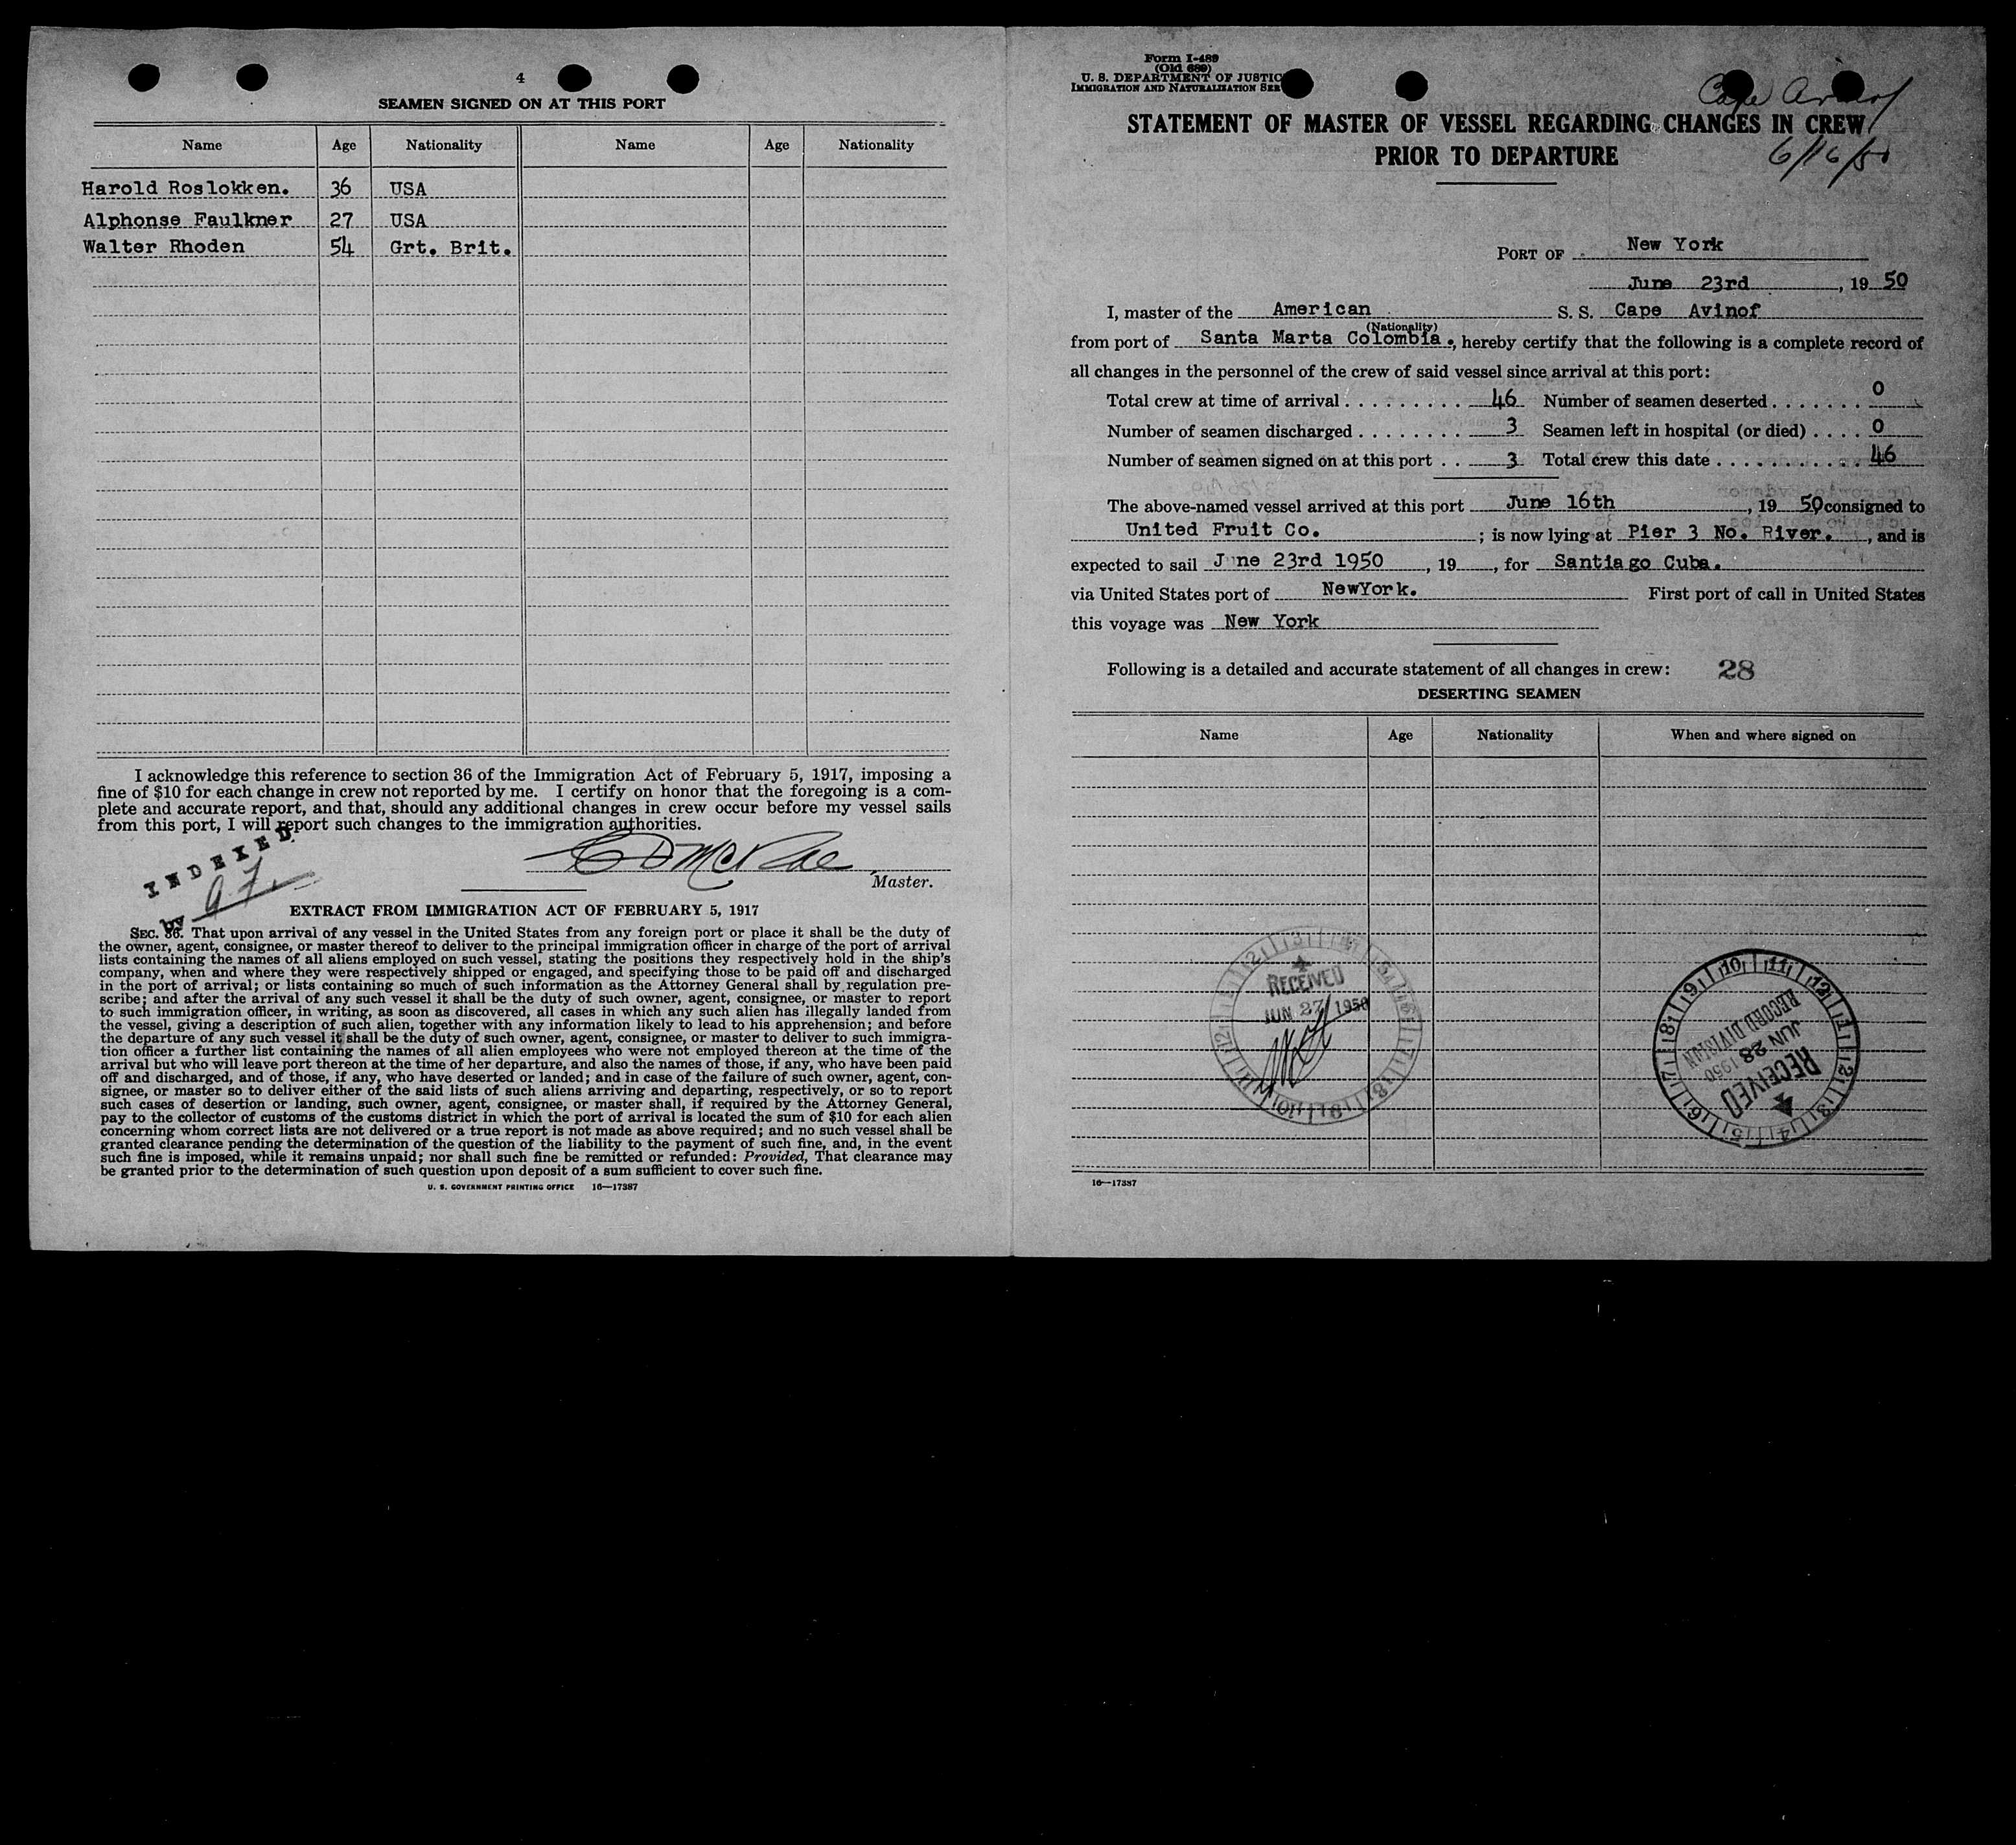 4
SEAMEN SIGNED ON AT THIS PORT
Name Age Nationality Name Age Nationality
Harold Roslokken. 36 USA
Alphonse Faulkner 27 USA
Walter Rhoden 54 Grt. Brit.
I acknowledge this reference to section 36 of the Immigration Act of February 5, 1917, imposing a
fine of $10 for each change in crew not reported by me. I certify on honor that the foregoing is a com-
plete and accurate report, and that, should any additional changes in crew occur before my vessel sails
from this port, I will report such changes to the immigration authorities.
INDEXED
by
Master.
EXTRACT FROM IMMIGRATION ACT OF FEBRUARY 5, 1917
SEC. 36. That upon arrival of any vessel in the United States from any foreign port or place it shall be the duty of
the owner, agent, consignee, or master thereof to deliver to the principal immigration officer in charge of the port of arrival
lists containing the names of all aliens employed on such vessel, stating the positions they respectively hold in the ship's
company, when and where they were respectively shipped or engaged, and specifying those to be paid off and discharged
in the port of arrival; or lists containing so much of such information as the Attorney General shall by regulation pre-
scribe; and after the arrival of any such vessel it shall be the duty of such owner, agent, consignee, or master to report
to such immigration officer, in writing, as soon as discovered, all cases in which any such alien has illegally landed from
the vessel, giving a description of such alien, together with any information likely to lead to his apprehension; and before
the departure of any such vessel it shall be the duty of such owner, agent, consignee, or master to deliver to such immigra-
tion officer a further list containing the names of all alien employees who were not employed thereon at the time of the
arrival but who will leave port thereon at the time of her departure, and also the names of those, if any, who have been paid
off and discharged, and of those, if any, who have deserted or landed; and in case of the failure of such owner, agent, con-
signee, or master so to deliver either of the said lists of such aliens arriving and departing, respectively, or so to report
such cases of desertion or landing, such owner, agent, consignee, or master shall, if required by the Attorney General,
pay to the collector of customs of the customs district in which the port of arrival is located the sum of $10 for each alien
concerning whom correct lists are not delivered or a true report is not made as above required; and no such vessel shall be
granted clearance pending the determination of the question of the liability to the payment of such fine, and, in the event
such fine is imposed, while it remains unpaid; nor shall such fine be remitted or refunded: Provided, That clearance may
be granted prior to the determination of such question upon deposit of a sum sufficient to cover such fine.
U. S. GOVERNMENT PRINTING OFFICE 16—17387
Form I-489
(Old 689)
U. S. DEPARTMENT OF JUSTIC
IMMIGRATION AND NATURALIZATION SER
Cape Avinof
STATEMENT OF MASTER OF VESSEL REGARDING CHANGES IN CREW
PRIOR TO DEPARTURE
6/16/50
PORT OF New York
June 23rd , 19 50
I, master of the American S. S. Cape Avinof
(Nationality)
from port of Santa Marta Colombia. , hereby certify that the following is a complete record of
all changes in the personnel of the crew of said vessel since arrival at this port:
Total crew at time of arrival . . . . . . . . . . 46 Number of seamen deserted . . . . . . . 0
Number of seamen discharged . . . . . . . . 3 Seamen left in hospital (or died) . . . . 0
Number of seamen signed on at this port . . 3 Total crew this date . . . . . . . . . . . . 46
The above-named vessel arrived at this port June 16th , 19 50 consigned to
United Fruit Co. ; is now lying at Pier 3 No. River. , and is
expected to sail J ne 23rd 1950 , 19 , for Santiago Cuba.
via United States port of NewYork. First port of call in United States
this voyage was New York
Following is a detailed and accurate statement of all changes in crew: 28
DESERTING SEAMEN
Name Age Nationality When and where signed on
RECEIVED
JUN 27 1950
RECEIVED
JUN 28 1950
RECORD DIVISION
16—17387